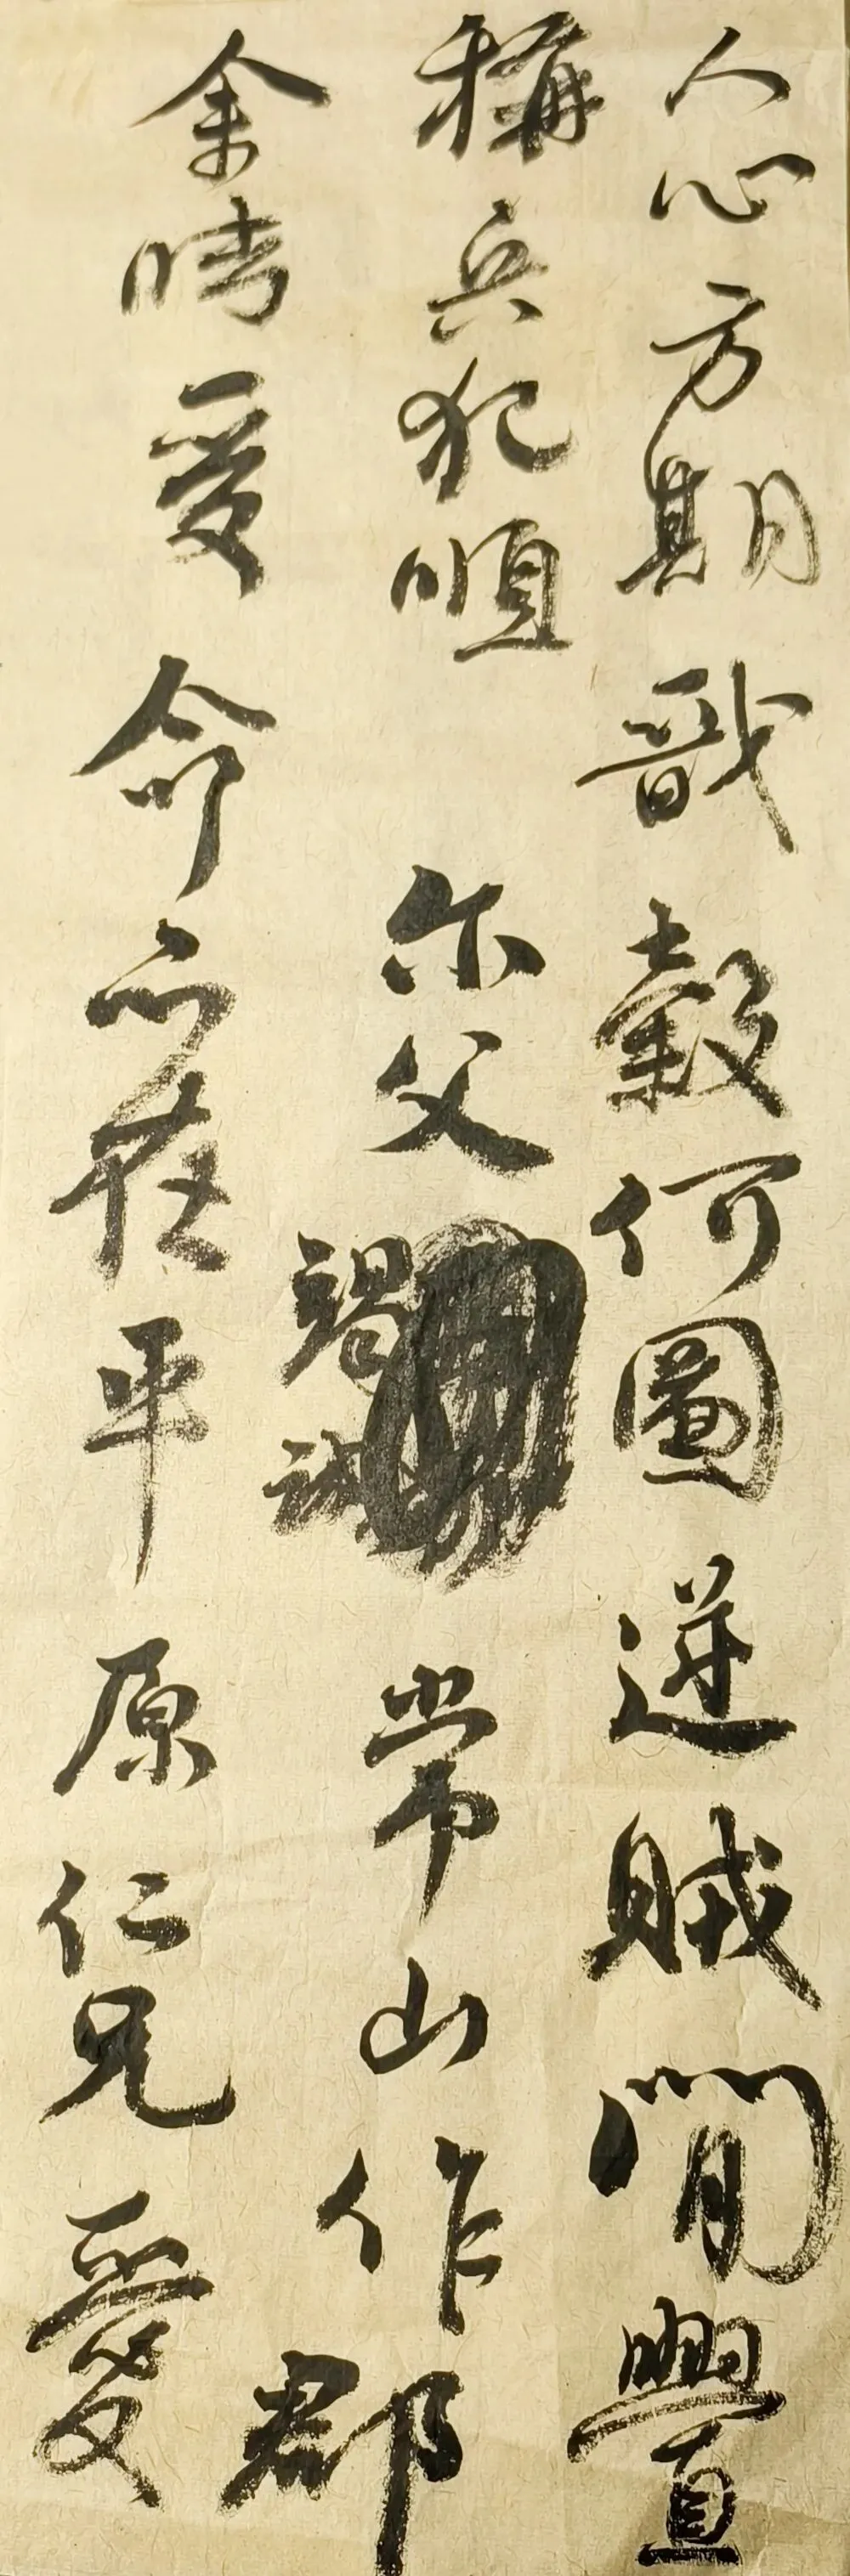 人心方期戩穀何圖逆賊閒釁
稱兵犯順尔父竭誠常山作郡
余時受命亦在平原仁兄愛